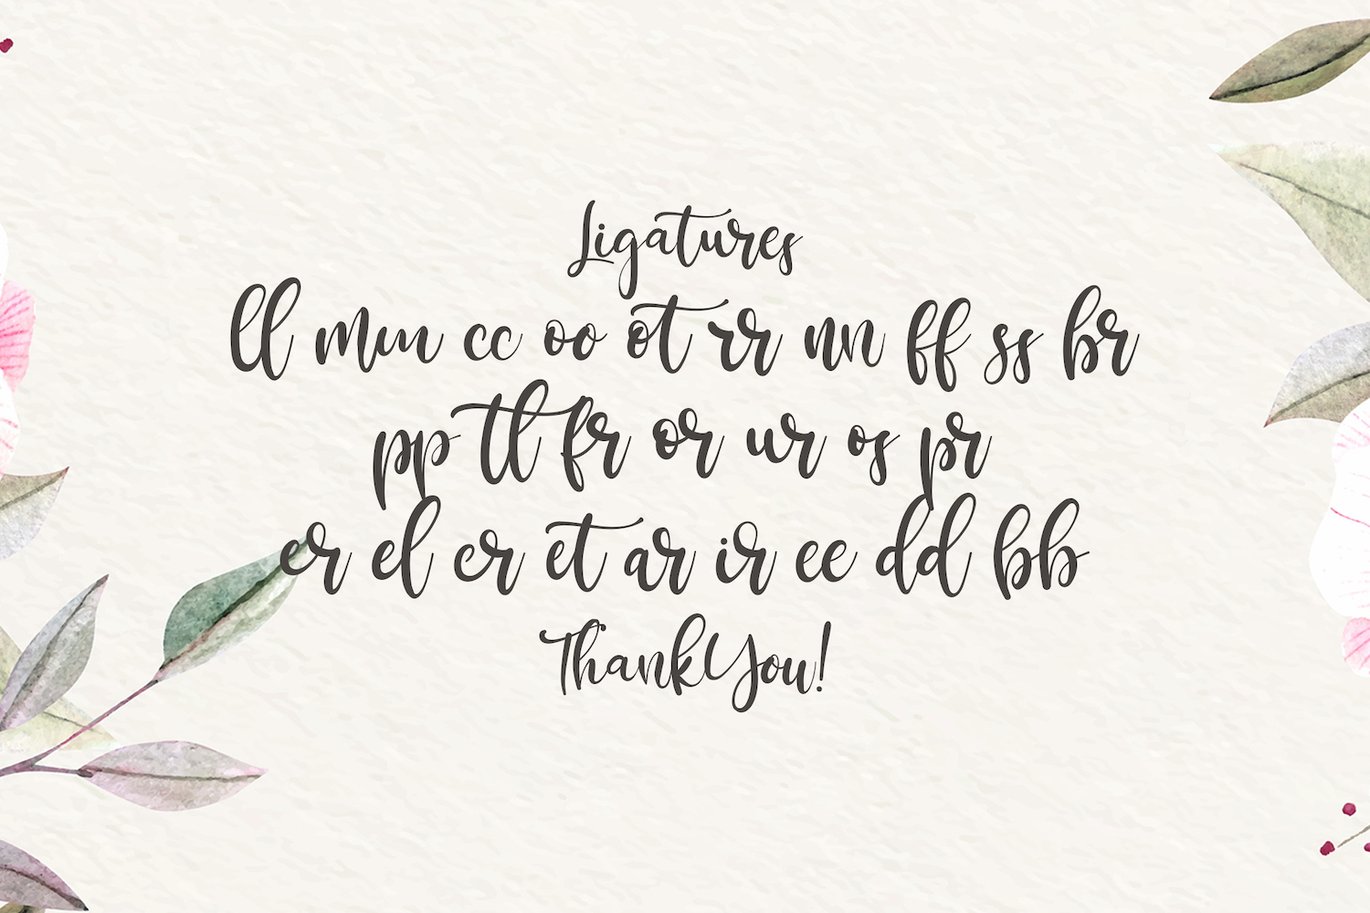 Ligatures
ll mm cc oo ot rr nn ff ss br
pp tl fr or ur os pr
er el cr et ar ir ee dd bb
Thank You!